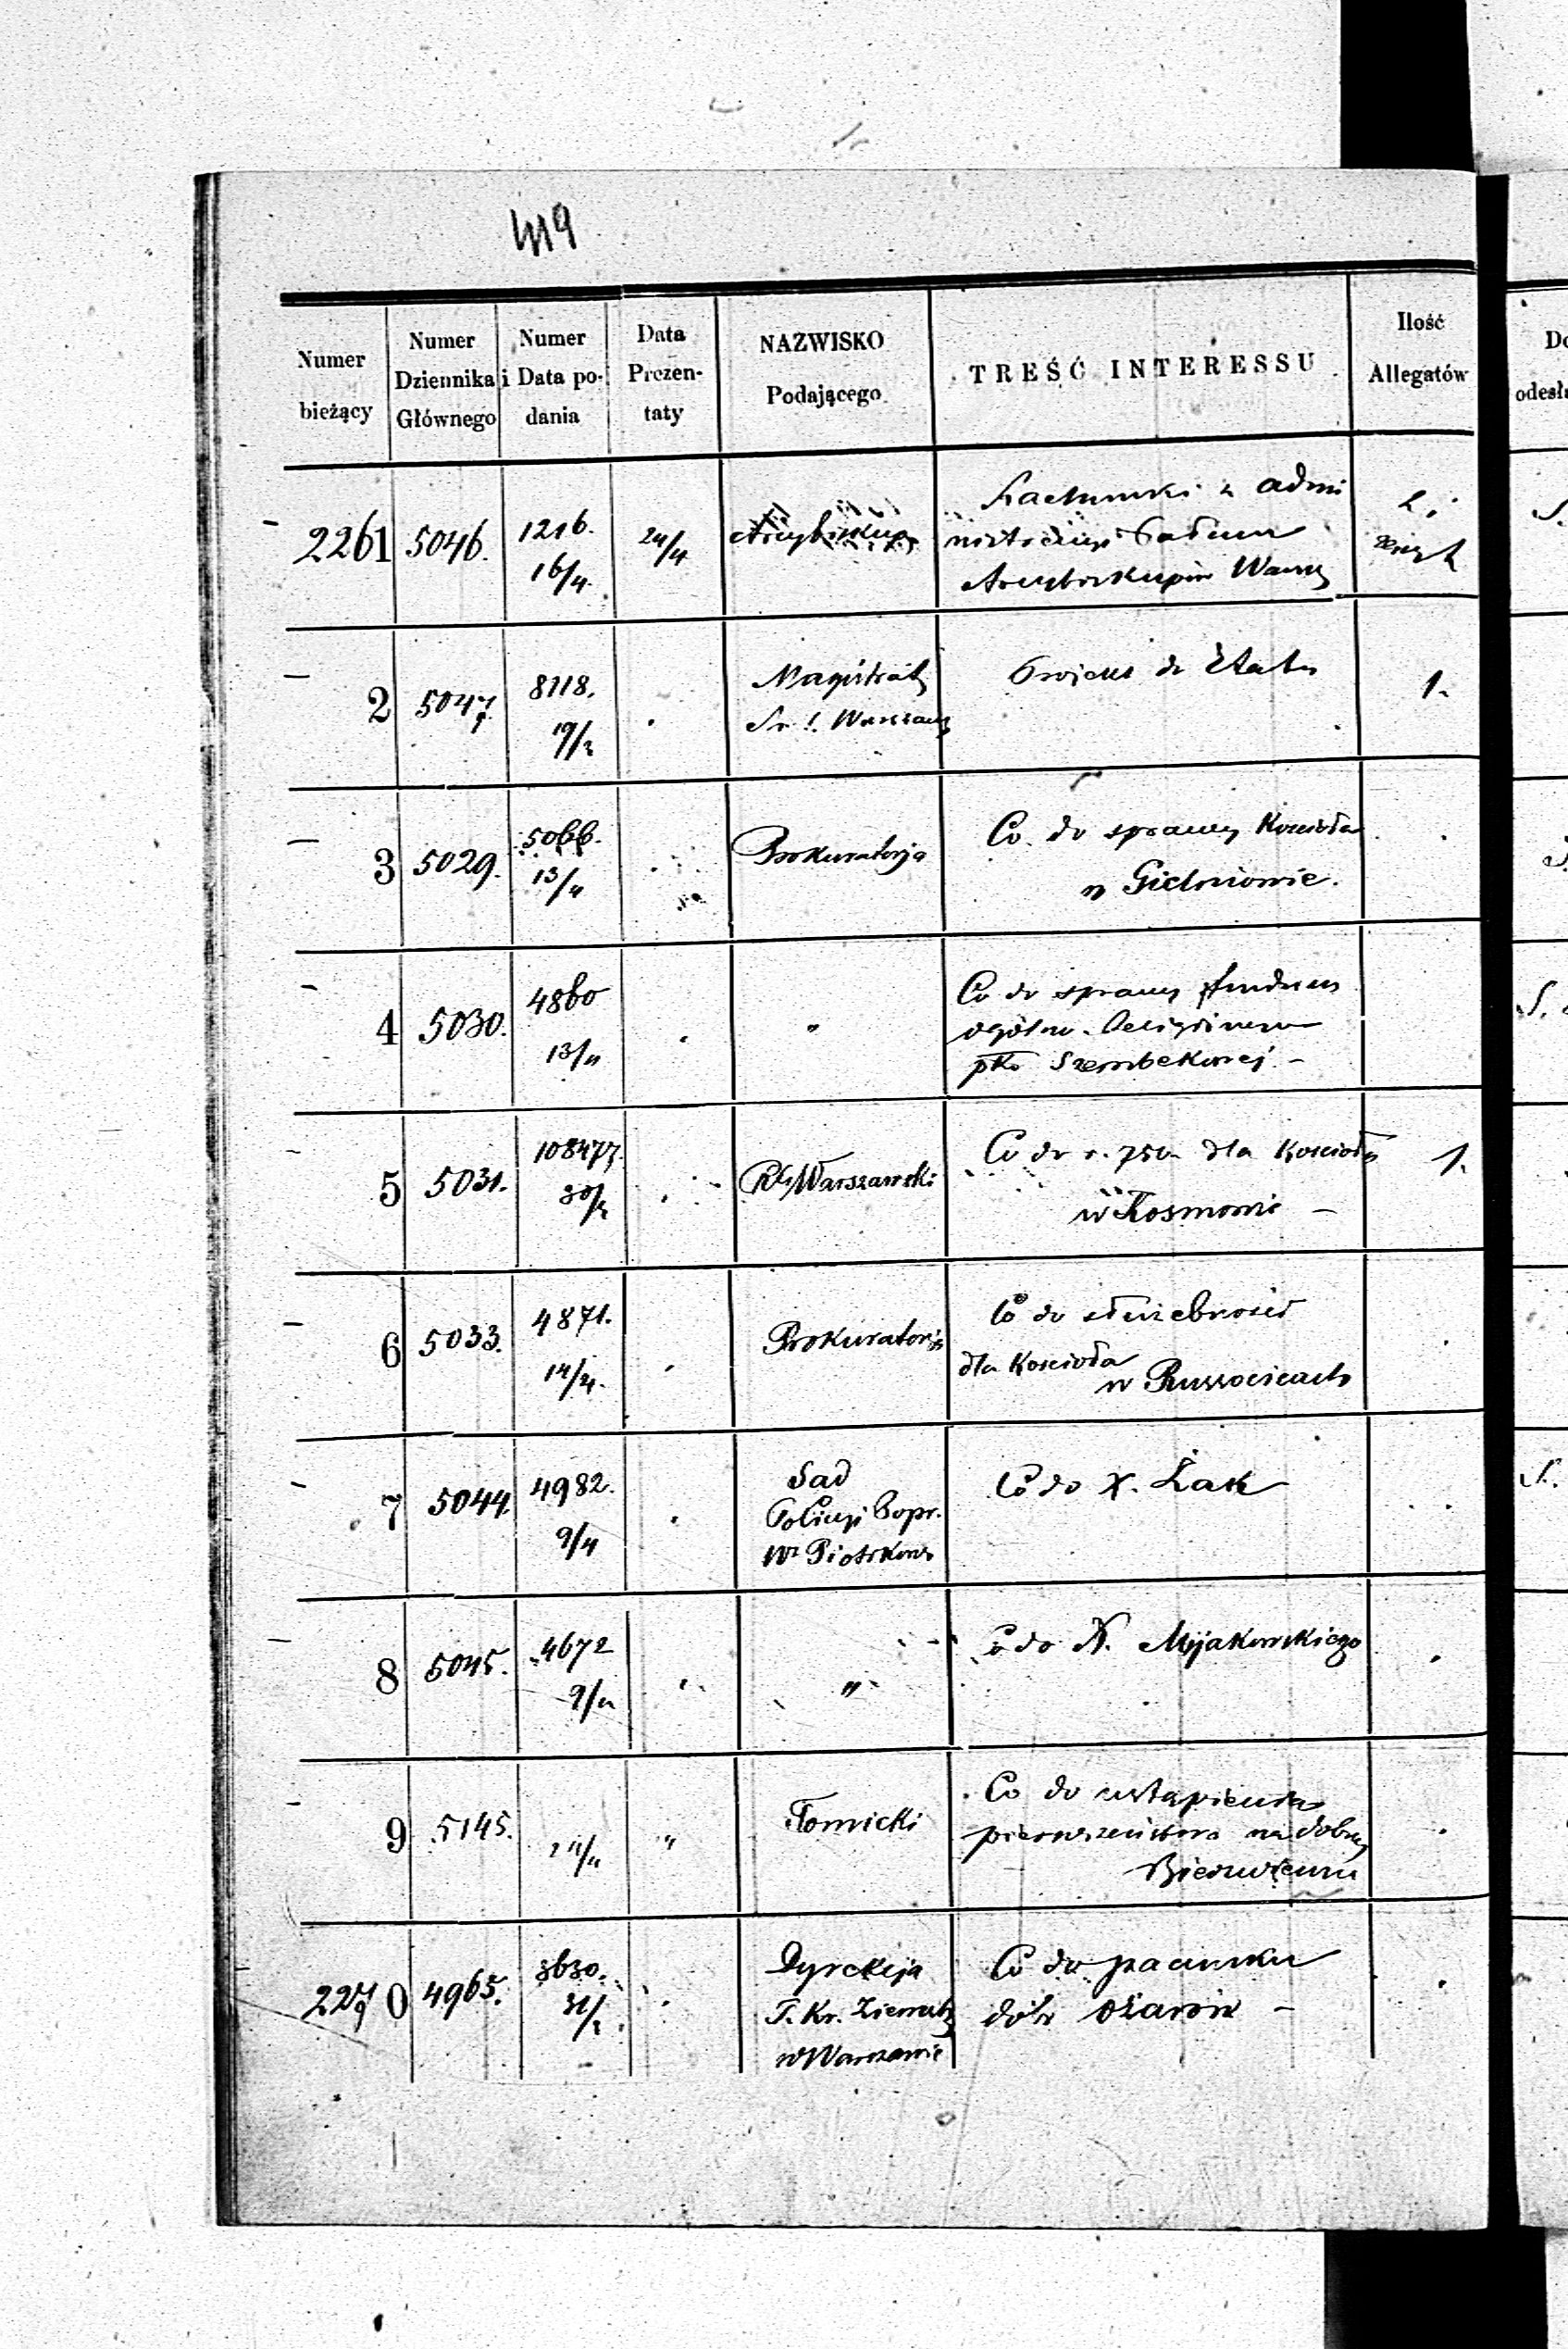 419
Numer bieżący | Numer Dziennika Głównego | Numer i Data podania | Data Prezentaty | NAZWISKO Podającego | TREŚĆ INTERESSU | Ilość Allegatów
2261 | 5046. | 1216. 16/4. | 24/4 | Arcybiskup | Rachunki z admi
nistracyi Pałacu
Arcybiskupów Warsz
2 | 5047. | 8118. 19/3 | . | Magistrat | Projekt do Etatu | 1.
M. Warszawy
3 | 5029. | 5066. 13/4 | . | Prokuratorja | Co do sprawy Kościoła
w Gielniowie.
4 | 5030. | 4860 13/4 | . | " | Co do sprawy funduszu
ogólno-Religijnego
pko Szembekowej –
5 | 5031. | 108477. 30/3 | . | RG Warszawski | Co do r. 750 dla Kościoła | 1.
w Kosmowie –
6 | 5033. | 4871. 14/4. | . | Prokuratorja | Co do służebności
dla Kościoła
w Russocicach
7 | 5044. | 4982. 9/4 | . | Sad | Co do X. Żak
Policyi Popr.
w Piotrkowie
8 | 5045. | 4672 9/4 | . | " | Co do X. Mijakowskiego
9 | 5145. | 24/4 | " | Tomicki | Co do ustąpienia
pierwszeństwa na dobrach
2270 | 4965. | 3630. 31/3 | . | Dyrekcja | Co do szacunku
T. Kr. Ziemsk | dóbr Ożarów –
w Warszawie